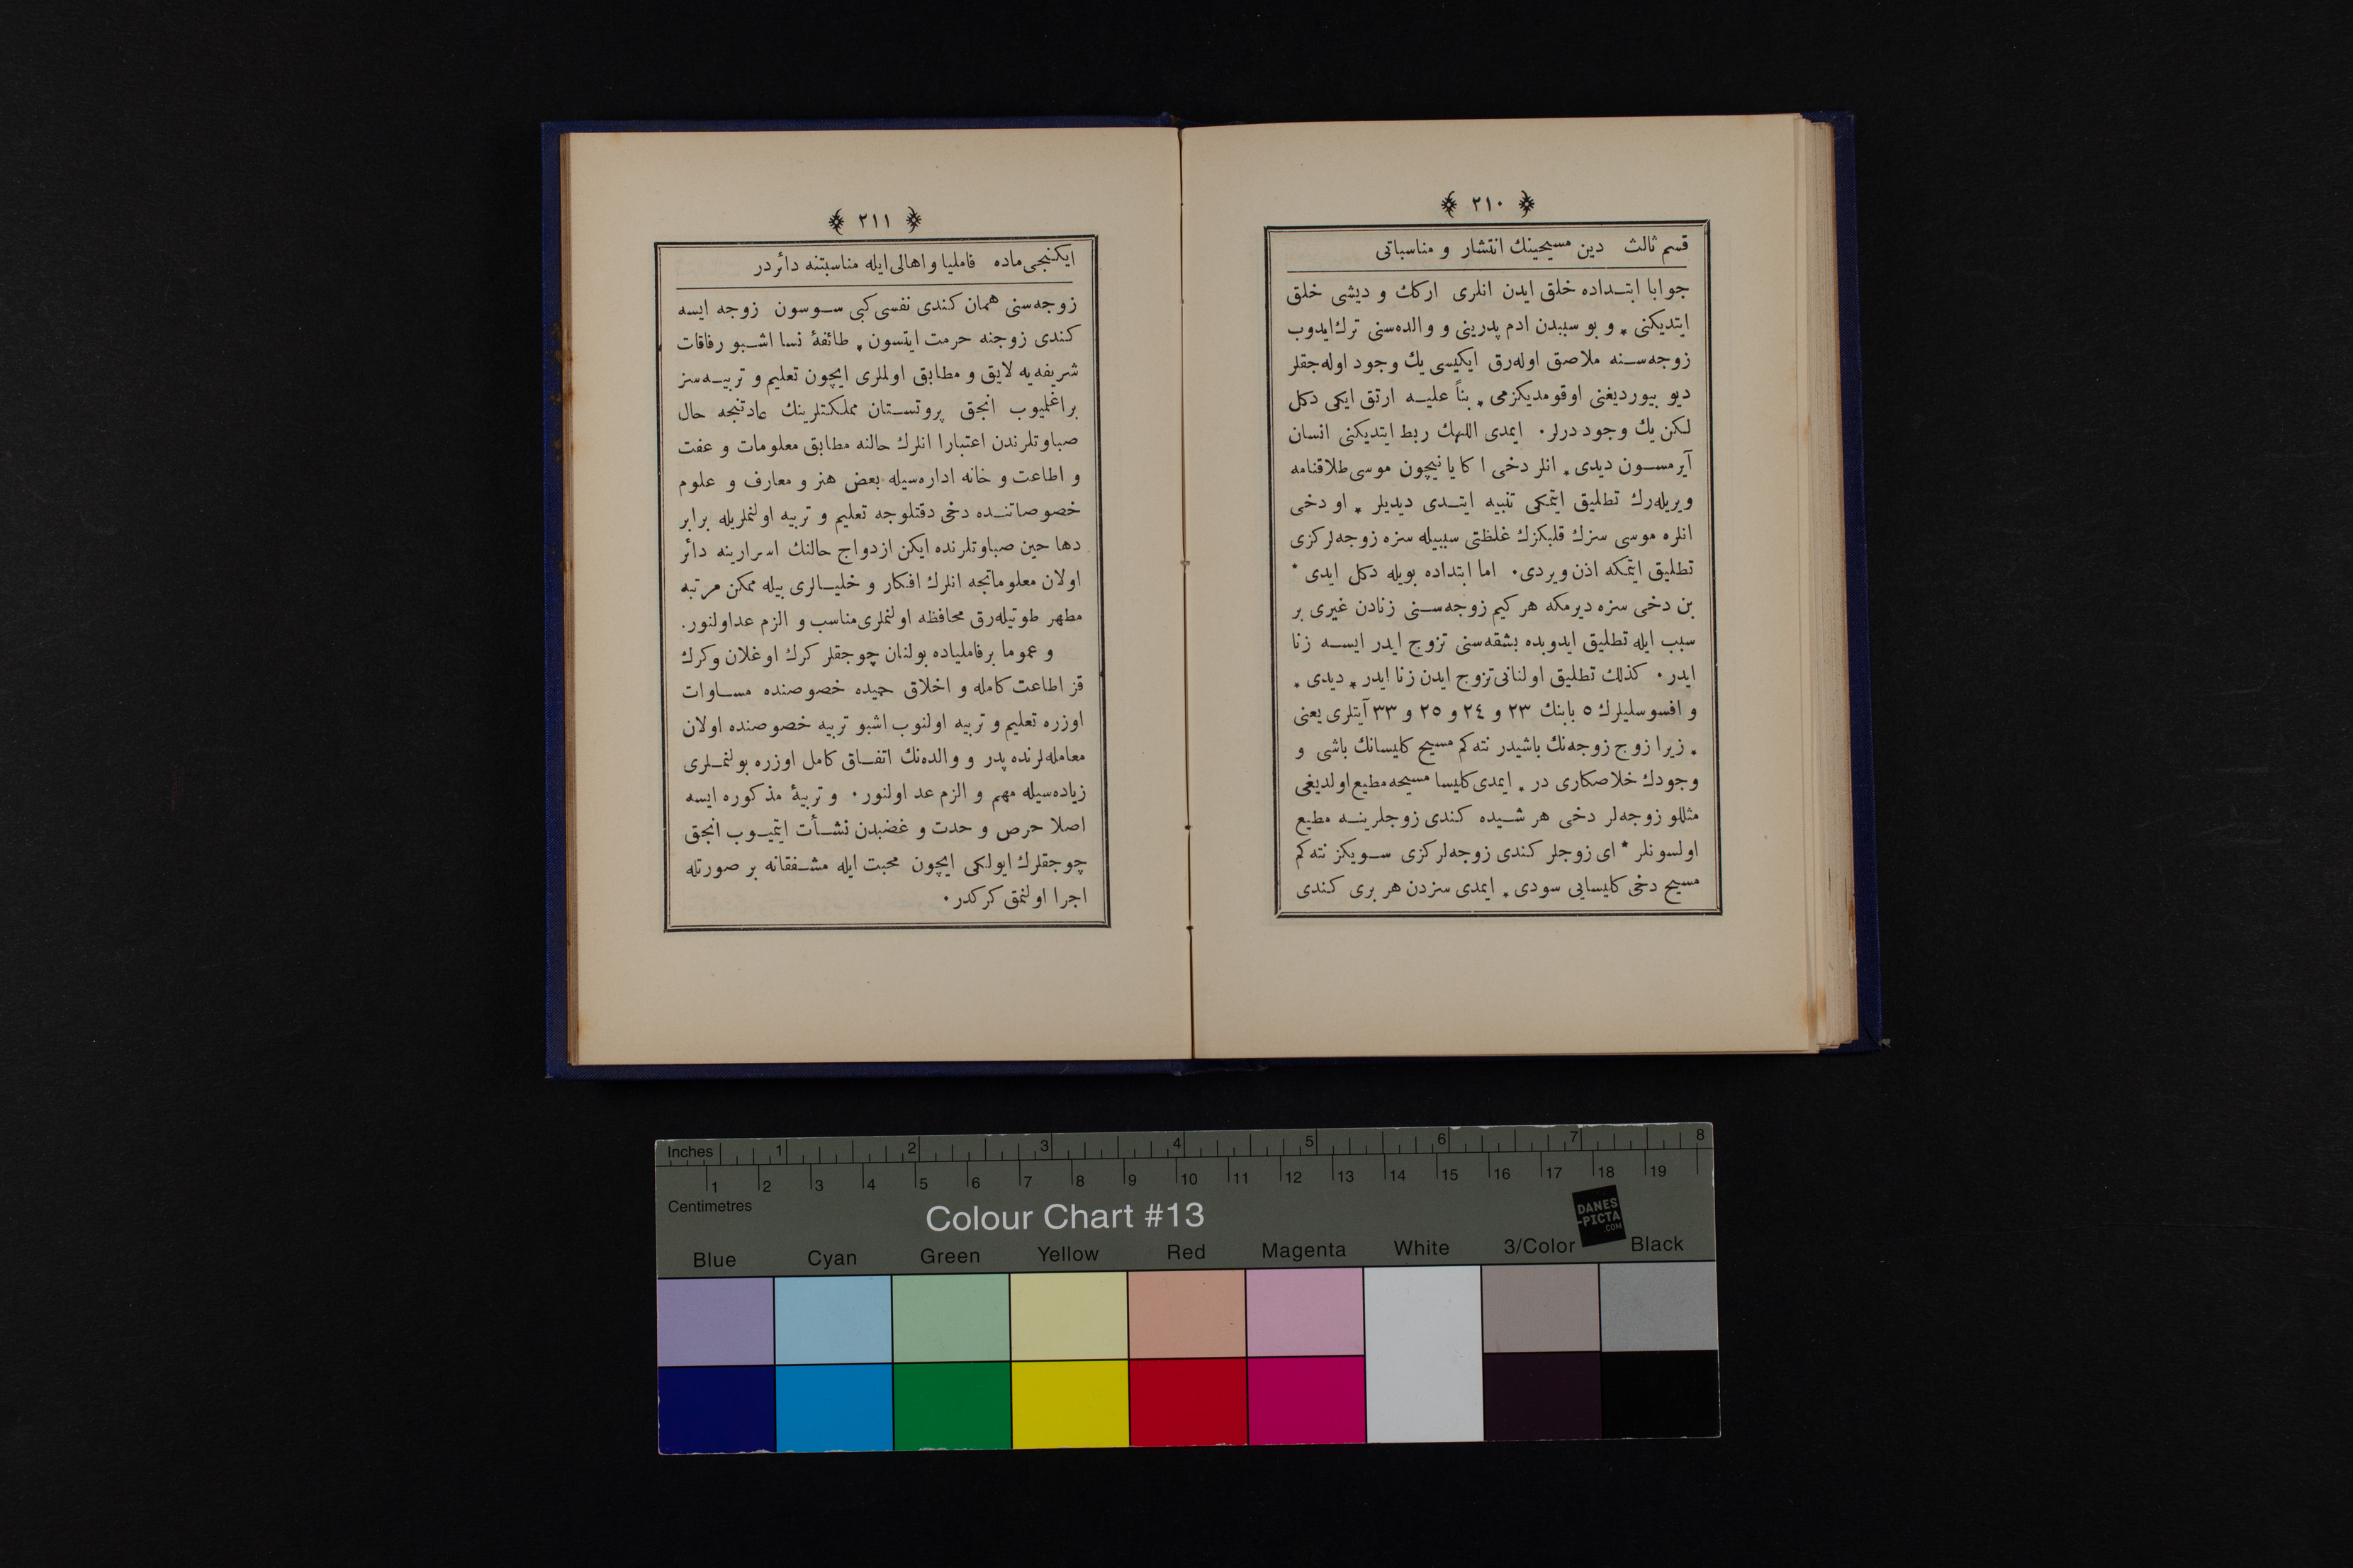 ﴿ ٢١٠ ﴾
قسم ثالث دين مسيحينك انتشار و مناسباتى
جوابا ابتداده خلق ايدن انلرى اركك و ديشى خلق
ايتديكنى * و بو سببدن ادم پدرينى و والده‌سنى ترك ايدوب
زوجه‌سنه ملاصق اوله‌رق ايكيسى يك وجود اوله‌جقلر
ديو بيورديغنى اوقومديكزمى * بناً عليه ارتق ايكى دكل
لكن يك وجود درلر. ايمدى اللهك ربط ايتديكنى انسان
آيرمسون ديدى * انلر دخى اكا يا نيچون موسى طلاقنامه
ويريله‌رك تطليق ايتمكى تنبيه ايتدى ديديلر * او دخى
انلره موسى سزك قلبكزك غلظتى سببيله سزه زوجه‌لركزى
تطليق ايتمكه اذن ويردى. اما ابتداده بويله دكل ايدى *
بن دخى سزه ديرمكه هر كيم زوجه‌سنى زنادن غيرى بر
سبب ايله تطليق ايدوبده بشقه‌سنى تزوج ايدر ايسه زنا
ايدر. كذلك تطليق اولنانى تزوج ايدن زنا ايدر * ديدى *
و افسوسليلرك ٥ بابنك ٢٣ و ٢٤ و ٢٥ و ٣٣ آيتلرى يعنى
* زيرا زوج زوجه‌نك باشيدر نته‌كم مسيح كليسانك باشى و
وجودك خلاصكارى در * ايمدى كليسا مسيحه مطيع اولديغى
مثللو زوجه‌لر دخى هر شيده كندى زوجلرينه مطيع
اولسونلر * اى زوجلر كندى زوجه‌لركزى سويكز نته‌كم
مسيح دخى كليسايى سودى * ايمدى سزدن هر برى كندى
﴿ ٢١١ ﴾
ايكنجى ماده فاميليا و اهالى ايله مناسبتنه دائر در
زوجه‌سنى همان كندى نفسى كبى سوسون زوجه ايسه
كندى زوجنه حرمت ايتسون * طائفۀ نسا اشبو رفاقات
شريفه‌يه لايق و مطابق اولملرى ايچون تعليم و تربيه‌سز
براغلميوب انجق پروتستان مملكتلرينك عادتنجه حال
صباوتلرندن اعتبارا انلرك حالنه مطابق معلومات و عفت
و اطاعت و خانه اداره‌سيله بعض هنر و معارف و علوم
خصوصاتنده دخى دقتلوجه تعليم و تربيه اولنملريله برابر
دها حين صباوتلرنده ايكن ازدواج حالنك اسرارينه دائر
اولان معلوماتجه انلرك افكار و خليالرى بيله ممكن مرتبه
مطهر طوتيله‌رق محافظه اولنملرى مناسب و الزم عد اولنور.
و عموما بر فاملياده بولنان چوجقلر كرك اوغلان و كرك
قز اطاعت كامله و اخلاق حميده خصوصنده مساوات
اوزره تعليم و تربيه اولنوب اشبو تربيه خصوصنده اولان
معامله‌لرنده پدر و والده‌نك اتفاق كامل اوزره بولنملرى
زياده‌سيله مهم و الزم عد اولنور. و تربيۀ مذكوره ايسه
اصلا حرص و حدت و غضبدن نشأت ايتميوب انجق
چوجقلرك ايولكى ايچون محبت ايله مشفقانه بر صورتله
اجرا اولنمق كركدر.
Inches 1 2 3 4 5 6 7 8
1 2 3 4 5 6 7 8 9 10 11 12 13 14 15 16 17 18 19
Centimetres
Colour Chart #13
DANES
-PICTA
.COM
Blue Cyan Green Yellow Red Magenta White 3/Color Black